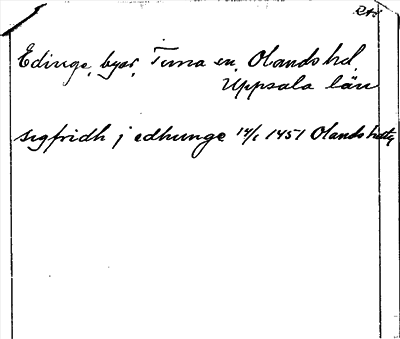 RA:
Edinge, byar, Tuna sn, Olands hd,
Uppsala län
sigfridh j edhunge 14/1 1451 Olands hdtg